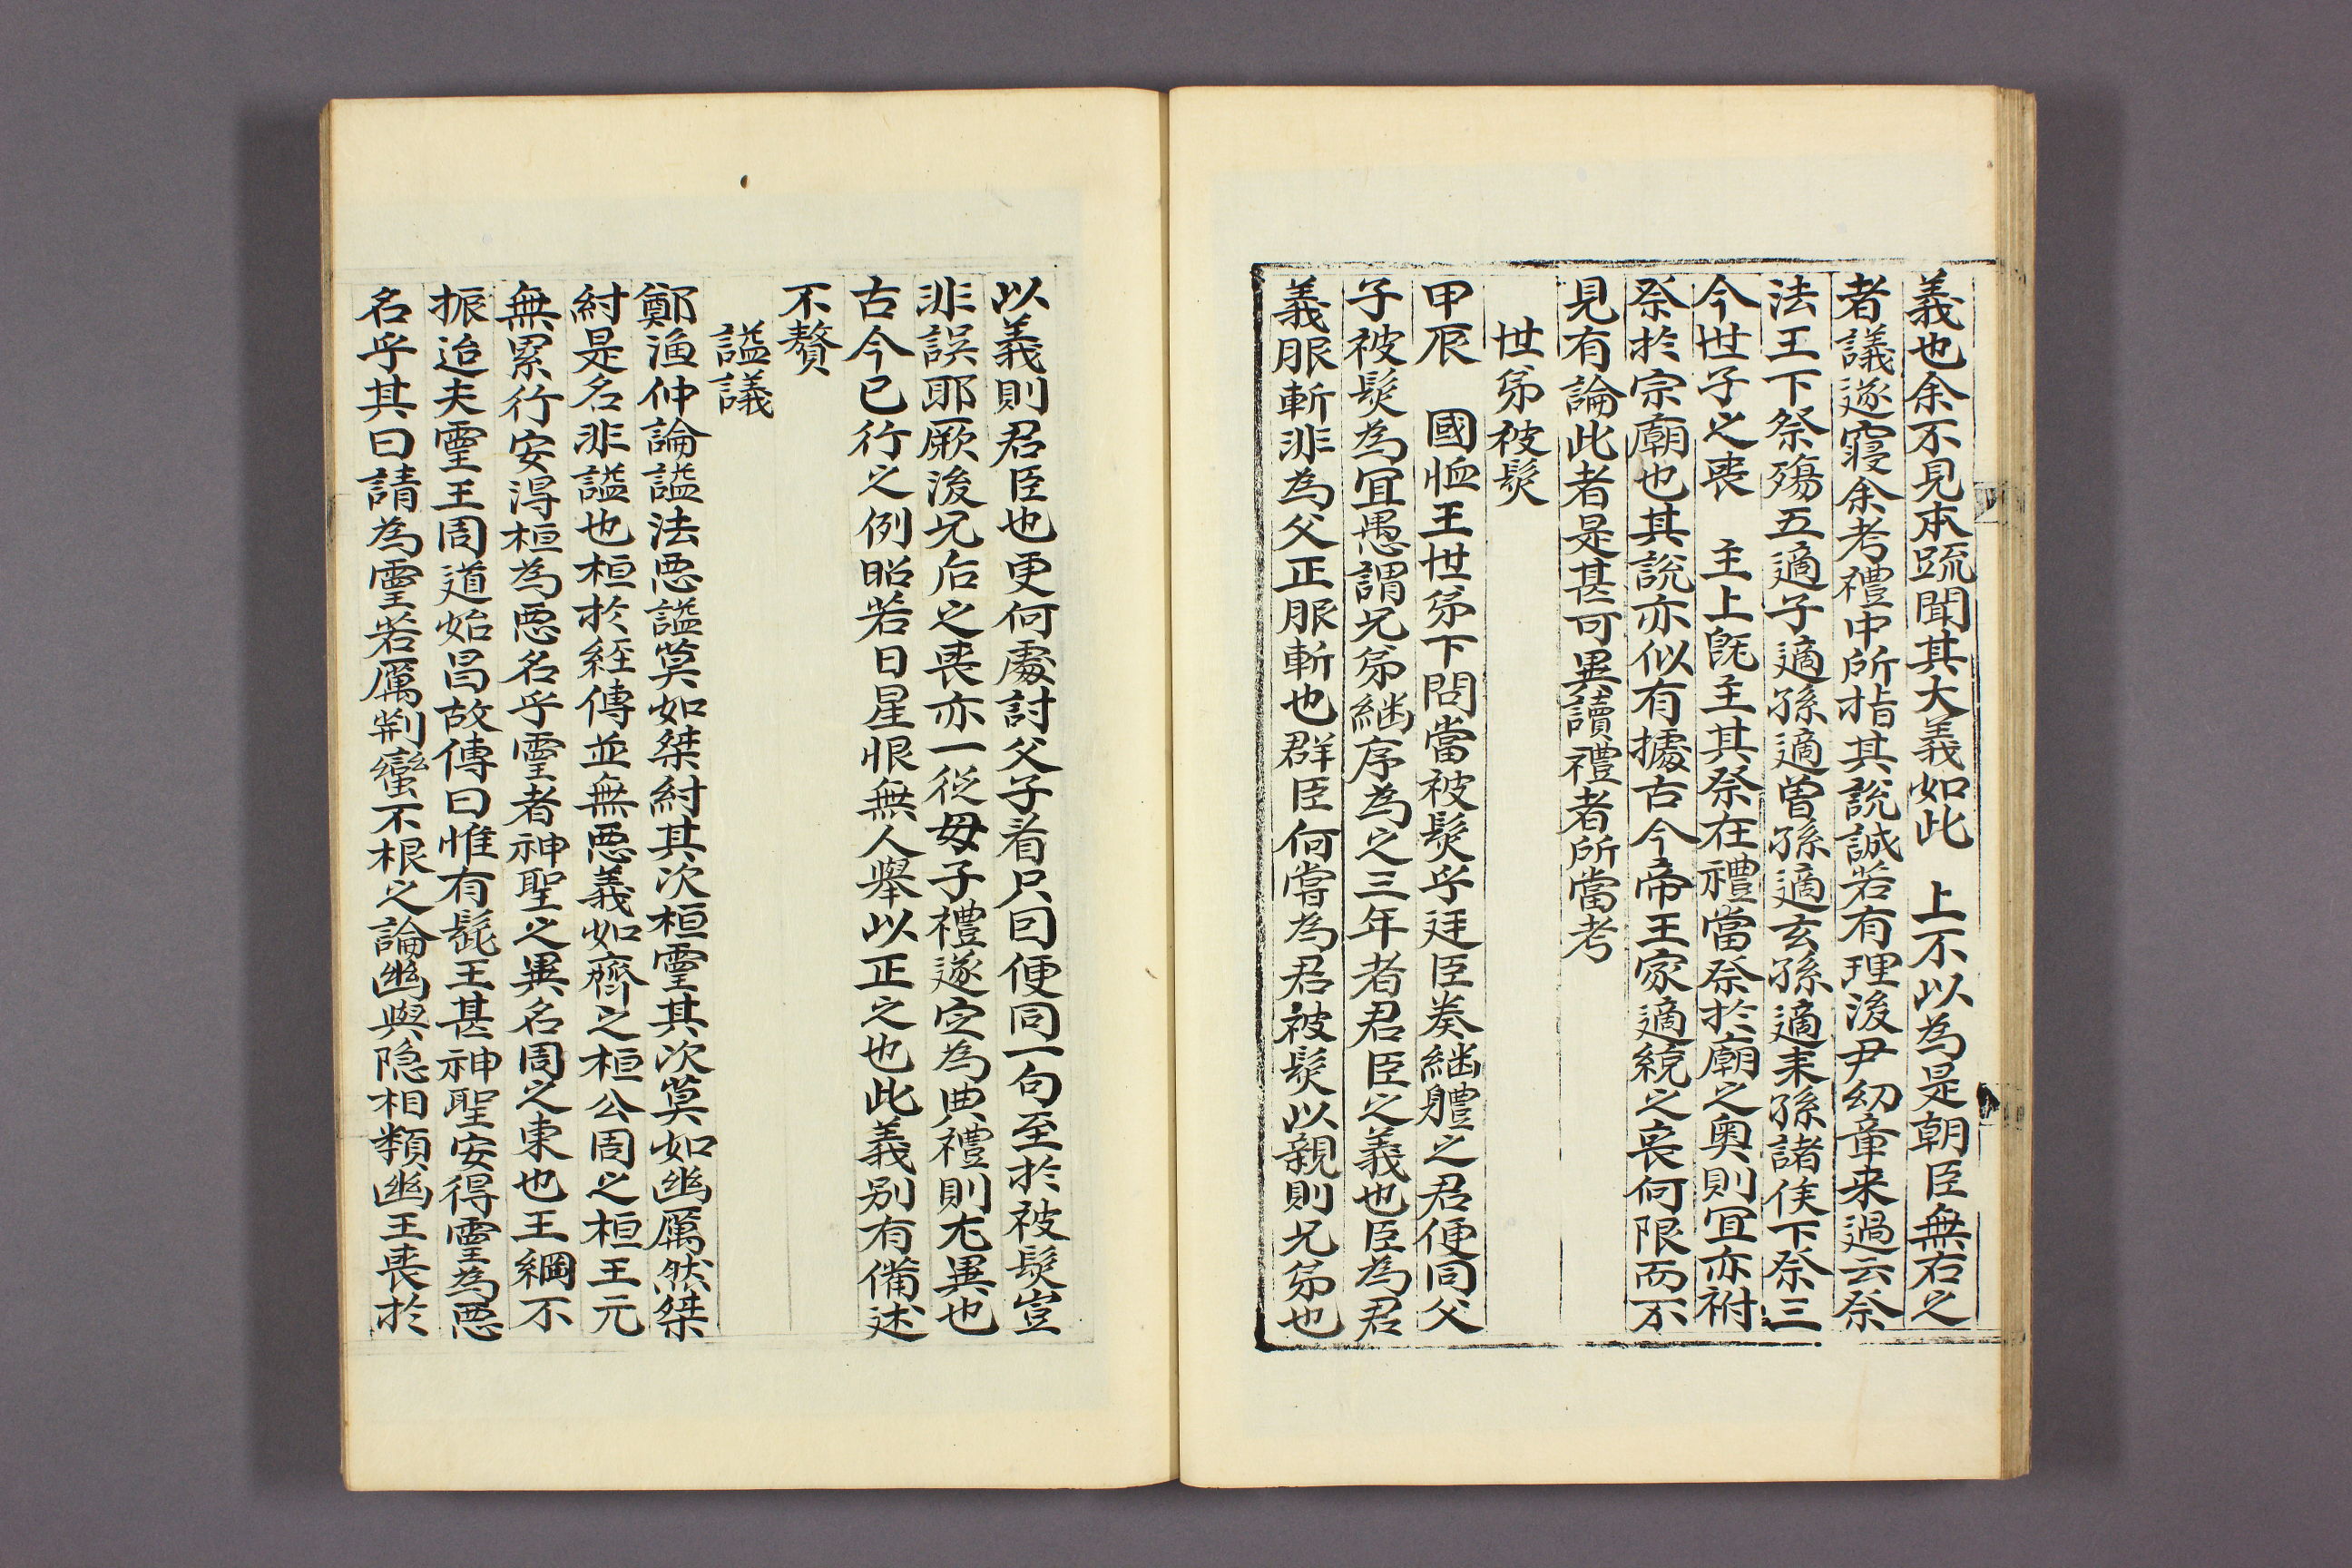 義也余不見本䟽聞其大義如此 上不以為是朝臣無右之
者議遂寢余考禮中所指其說誠若有理後尹幼章来過云祭
法王下祭殤五適子適孫適曾孫適玄孫適来孫諸侯下祭三
今世子之喪 主上旣主其祭在禮當祭於廟之奥則冝亦祔
祭於宗廟也其說亦似有據古今帝王家適統之喪何限而不
見有論此者是甚可異讀禮者所當考
世弟被髮
甲辰 國恤王世弟下問當被髮乎廷臣奏継體之君便同父
子被髮為冝愚謂兄弟継序為之三年者君臣之義也臣為君
義服斬非為父正服斬也群臣何嘗為君被髮以親則兄弟也
以義則君臣也更何處討父子看只囙便同一句至於被髮豈
非誤耶厥後兄后之喪亦一從母子禮遂定為典禮則尤異也
古今已行之例昭若日星恨無人舉以正之也此義別有備述
不贅
謚議
鄭漁仲論謚法惡謚莫如桀紂其次桓靈其次莫如幽厲然桀
紂是名非謚也桓於経傳並無惡義如齊之桓公周之桓王元
無累行安得桓為惡名乎靈者神聖之異名周之東也王綱不
振迨夫靈王周道始昌故傳曰惟有髭王甚神聖安得靈為惡
名乎其曰請為靈若厲荆蠻不根之論幽與隐相類幽王喪於